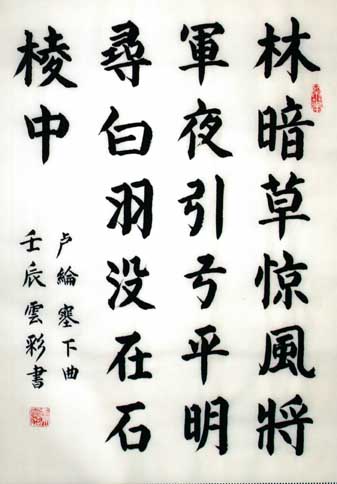 林暗草惊風將
軍夜引弓平明
尋白羽没在石
棱中
卢綸塞下曲
壬辰雲彩書